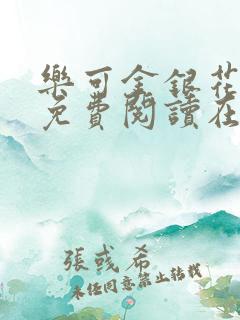 樂可金銀花
免費閱讀在
張彧希
未經同意禁止轉載